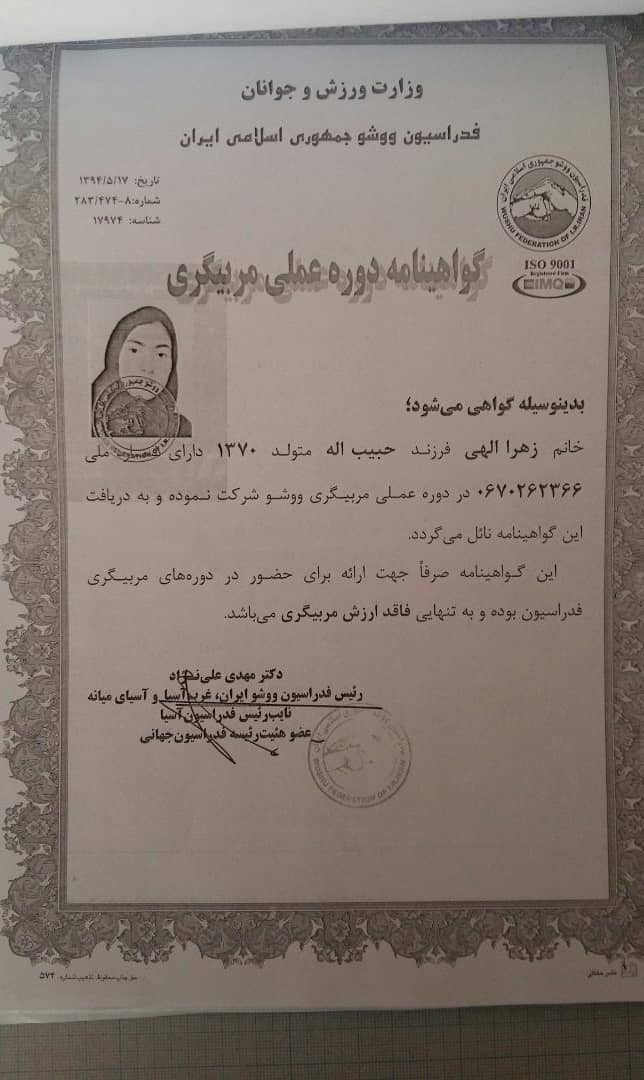 وزارت ورزش و جوانان
فدراسیون ووشو جمهوری اسلامی ایران
تاریخ: ۱۳۹۴/۵/۱۷
شماره:۸-۲۸۳/۴۷۴
شناسه: ۱۷۹۷۴
فدراسیون ووشو جمهوری اسلامی ایران
WUSHU FEDERATION OF I.R.IRAN
ISO 9001
Registered Firm
IMQ
گواهینامه دوره عملی مربیگری
بدینوسیله گواهی می‌شود؛
خانم زهرا الهی فرزند حبیب اله متولد ۱۳۷۰ دارای ملی
۰۶۷۰۲۶۲۳۶۶ در دوره عملی مربیگری ووشو شرکت نموده و به دریافت
این گواهینامه نائل می‌گردد.
این گواهینامه صرفاً جهت ارائه برای حضور در دوره‌های مربیگری
فدراسیون بوده و به تنهایی فاقد ارزش مربیگری می‌باشد.
دکتر مهدی علی‌نژاد
رئیس فدراسیون ووشو ایران، غرب آسیا و آسیای میانه
نایب‌رئیس فدراسیون آسیا
عضو هئیت‌رئیسه فدراسیون جهانی
WUSHU FEDERATION OF I.R.IRAN
حق چاپ محفوظ. تذهیب شماره: ۵۷۴